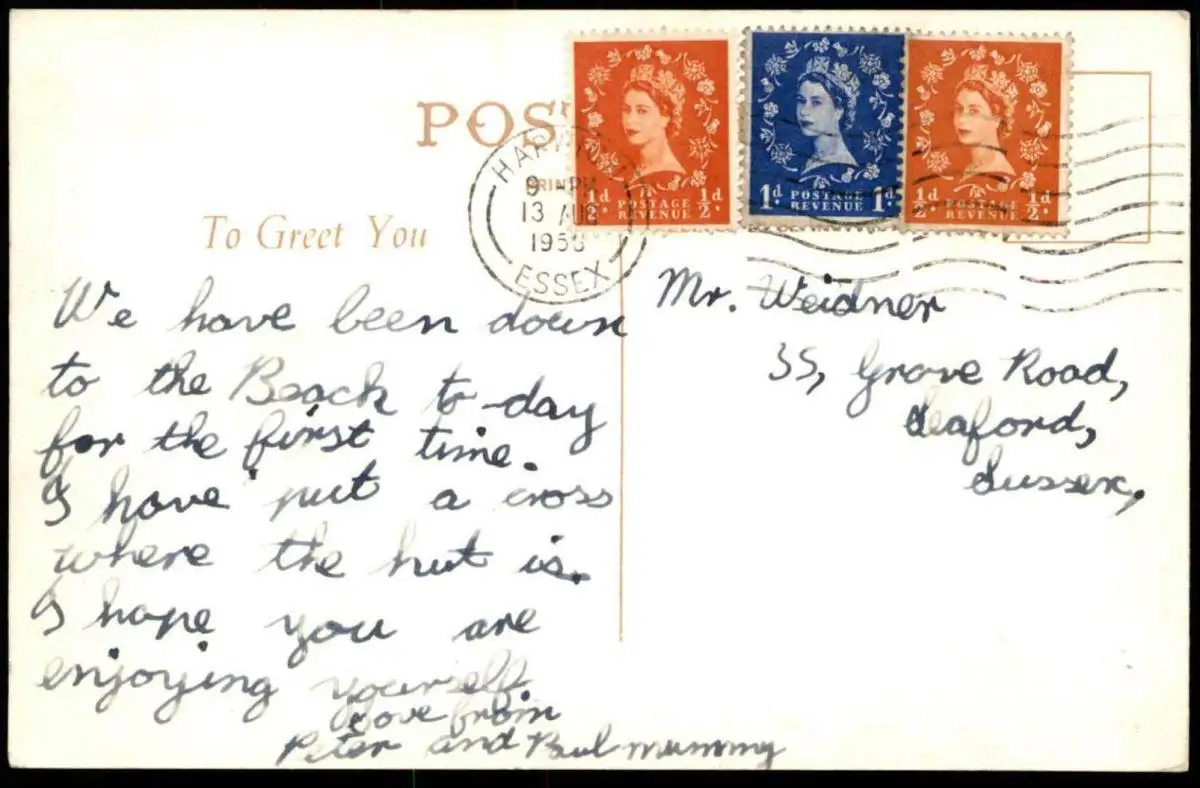 POS
To Greet You
HARWICH
9 PM
13 AUG
195
ESSEX
½d. POSTAGE REVENUE ½d.
1d POSTAGE REVENUE 1d.
½d. POSTAGE REVENUE ½d.
We have been down
to the Beach to-day
for the first time.
I have put a cross
where the hut is.
I hope you are
enjoying yourself
Love from
Peter and Paul mummy
Mr. Weidner
35, Grove Road,
Seaford,
Sussex,